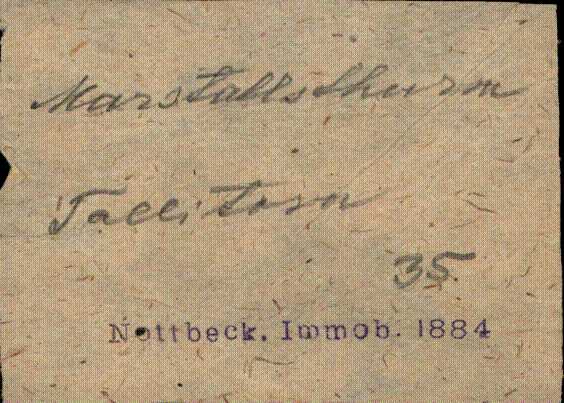 Marstallsthurm
Tallitorn
35.
Nottbeck. Immob. 1884